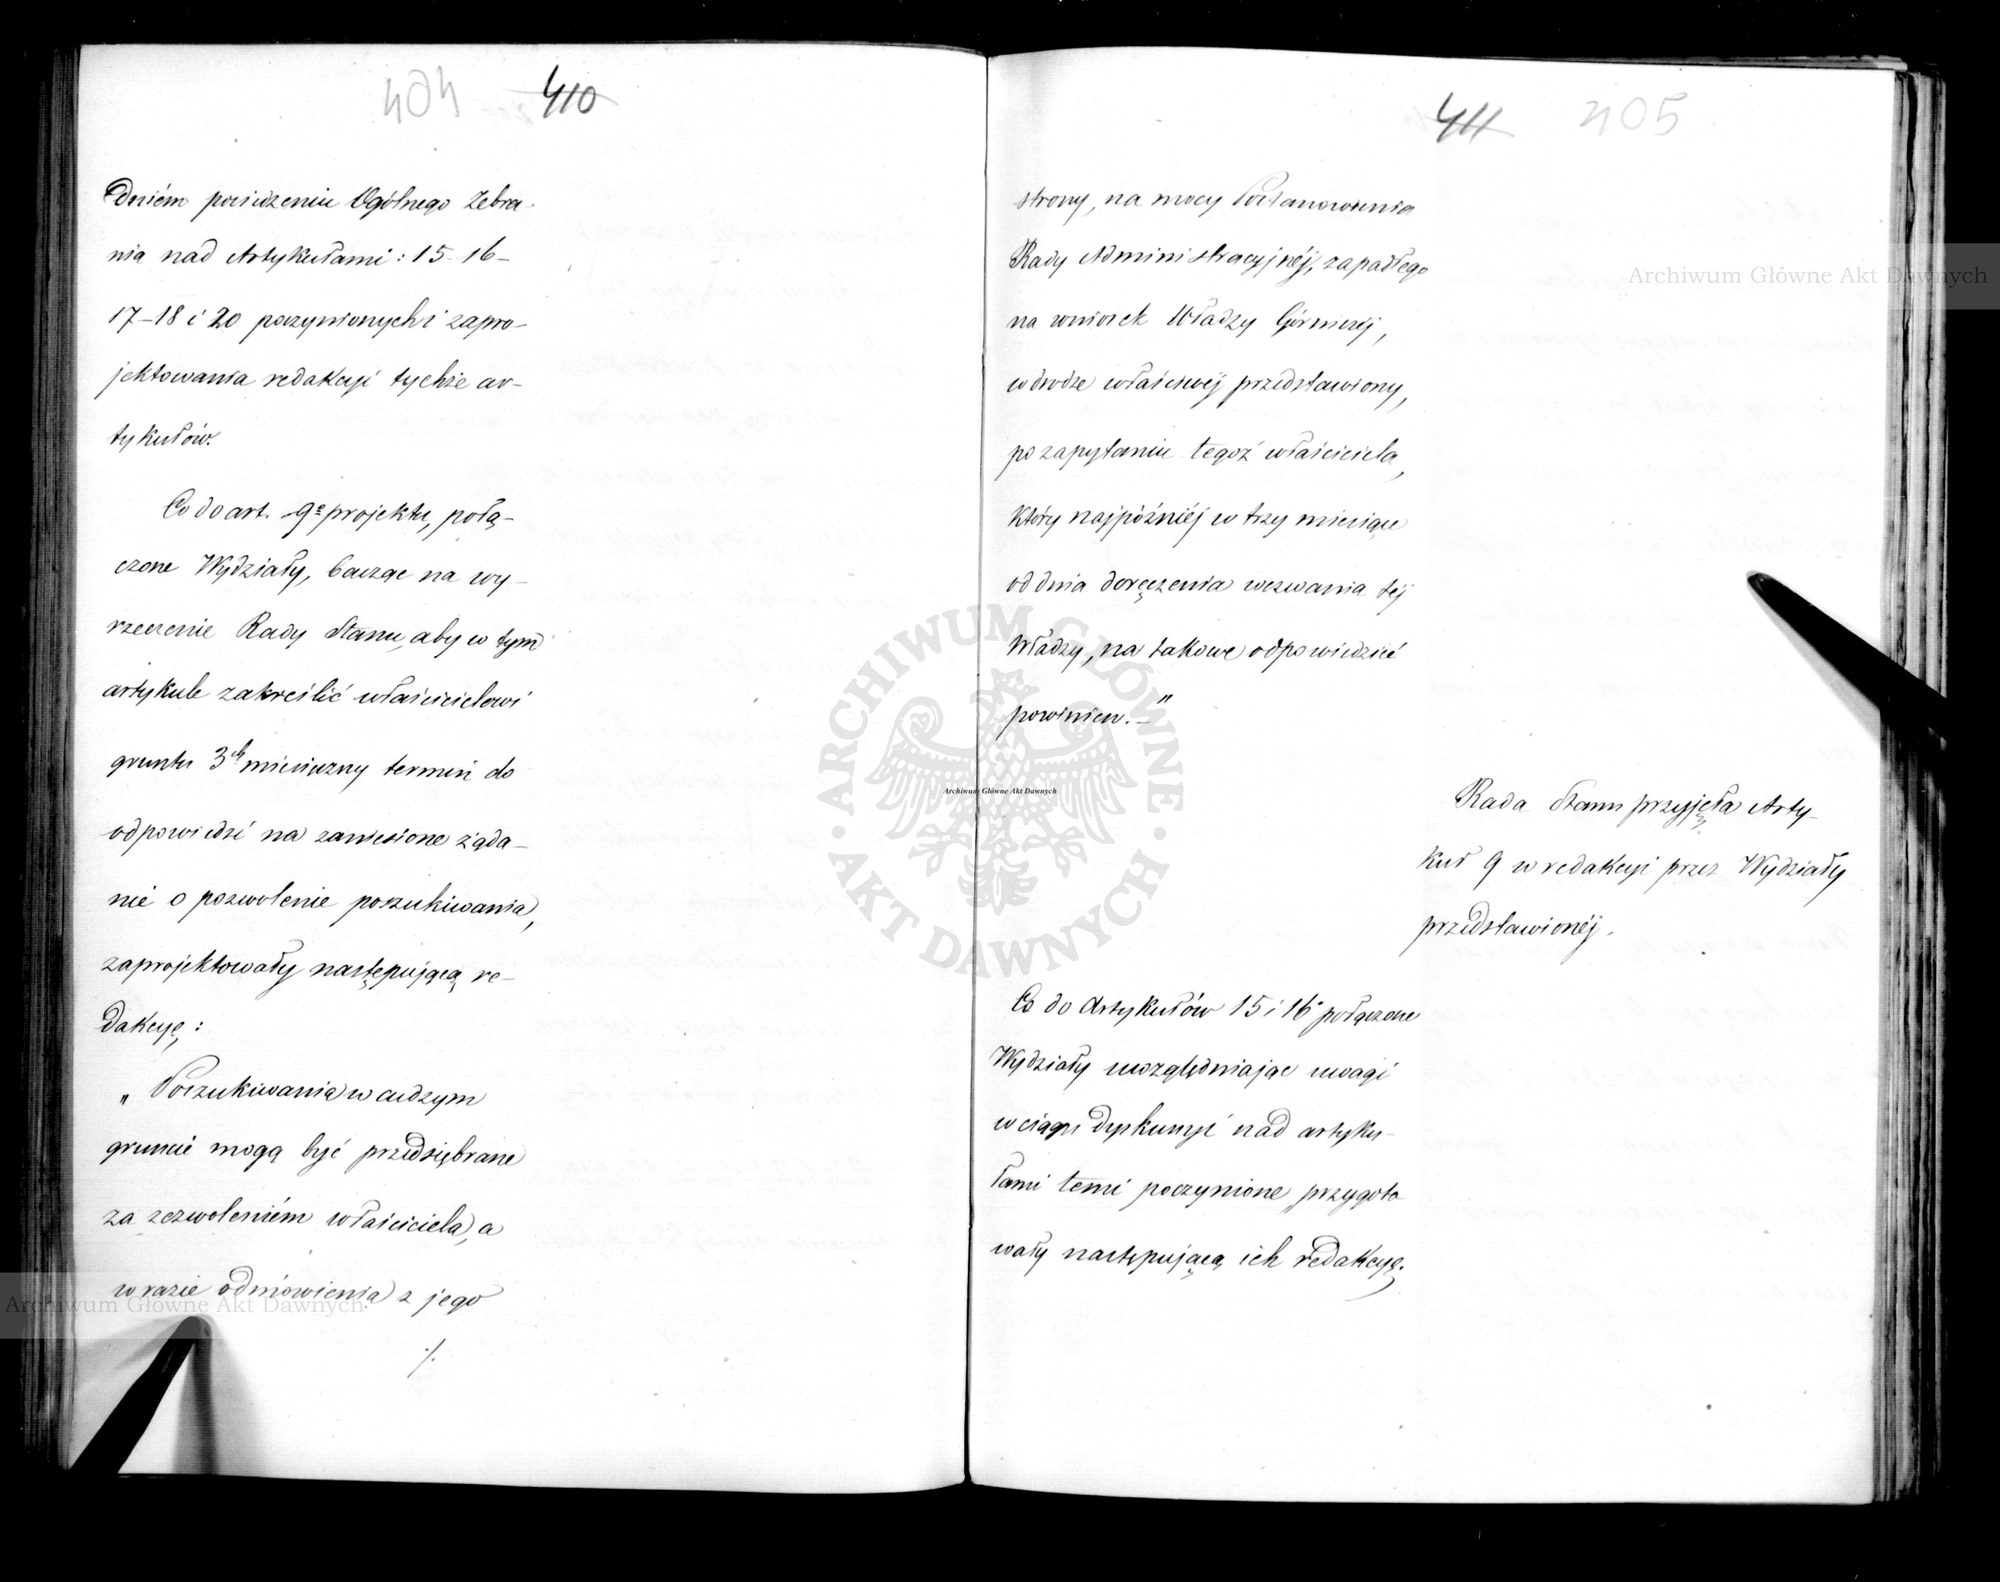 404 410
dniém posiedzeniu Ogólnego Zebra-
nia nad Artykułami: 15-16-
17-18 i 20 poczynionych i zapro-
jektowania redakcyi tychże ar-
tykułów.
Co do art. 9º projektu, połą-
czone Wydziały, bacząc na wy-
rzeczenie Rady Stanu, aby w tym
artykule zakreślić właścicielowi
gruntu 3ch miesięczny termin do
odpowiedzi na zaniesione żąda-
nie o pozwolenie poszukiwania,
zaprojektowały następującą re-
dakcyę:
„Poszukiwania w cudzym
gruncie mogą być przedsiębrane
za zezwoleniém właściciela, a
w razie odmówienia z jego
./.
411 405
strony, na mocy Postanowienia
Rady Administracyjnéj, zapadłego
na wniosek Władzy Górniczéj,
w drodze właściwéj przedstawiony,
po zapytaniu tegoż właściciela,
który najpóźniéj w trzy miesiące
od dnia doręczenia wezwania téj
Władzy, na takowe odpowiedzieć
powinien.—"
Rada Stanu przyjęła Arty-
kuł 9 w redakcyi przez Wydziały
przedstawionéj.
Co do Artykułów 15 i 16 połączone
Wydziały uwzględniając uwagi
w ciągu dyskussyi nad artyku-
łami temi poczynione przygoto
wały następującą ich redakcyę.
Archiwum Główne Akt Dawnych
Archiwum Główne Akt Dawnych
Archiwum Główne Akt Dawnych
ARCHIWUM GŁÓWNE · AKT DAWNYCH ·